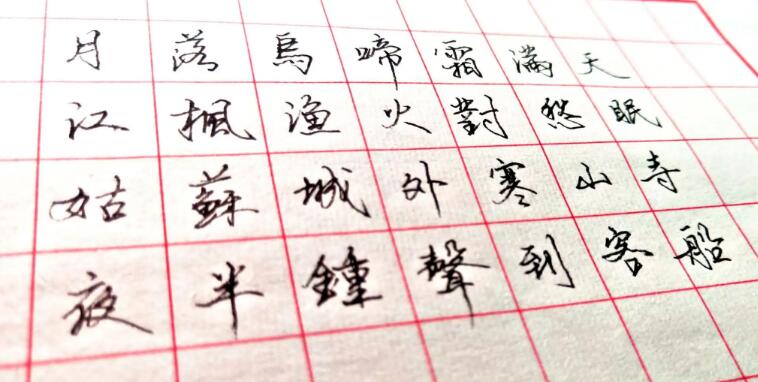 月落烏啼霜滿天
江楓漁火對愁眠
姑蘇城外寒山寺
夜半鍾聲到客船